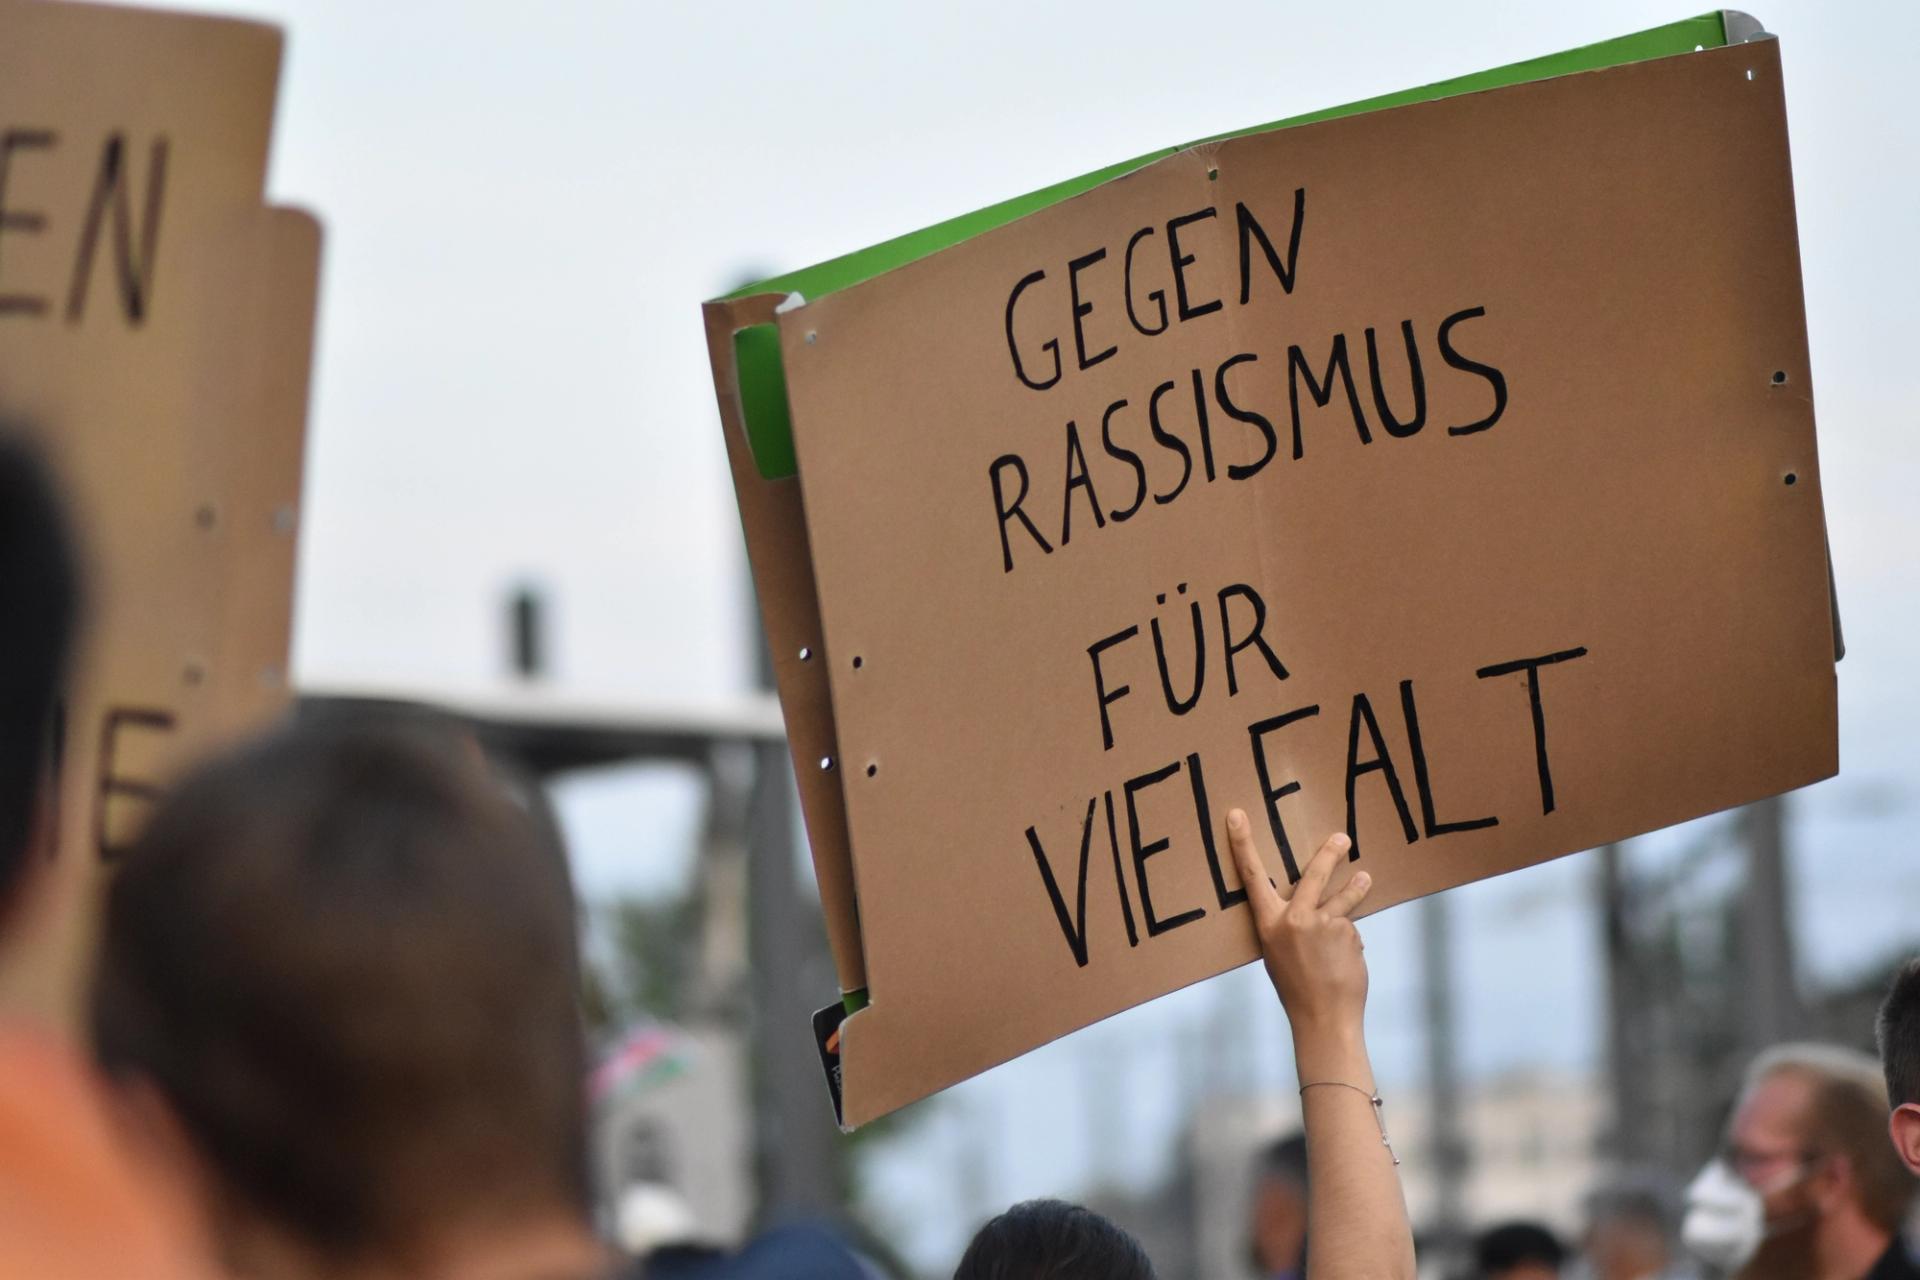 GEGEN
RASSISMUS
FÜR
VIELFALT
EN